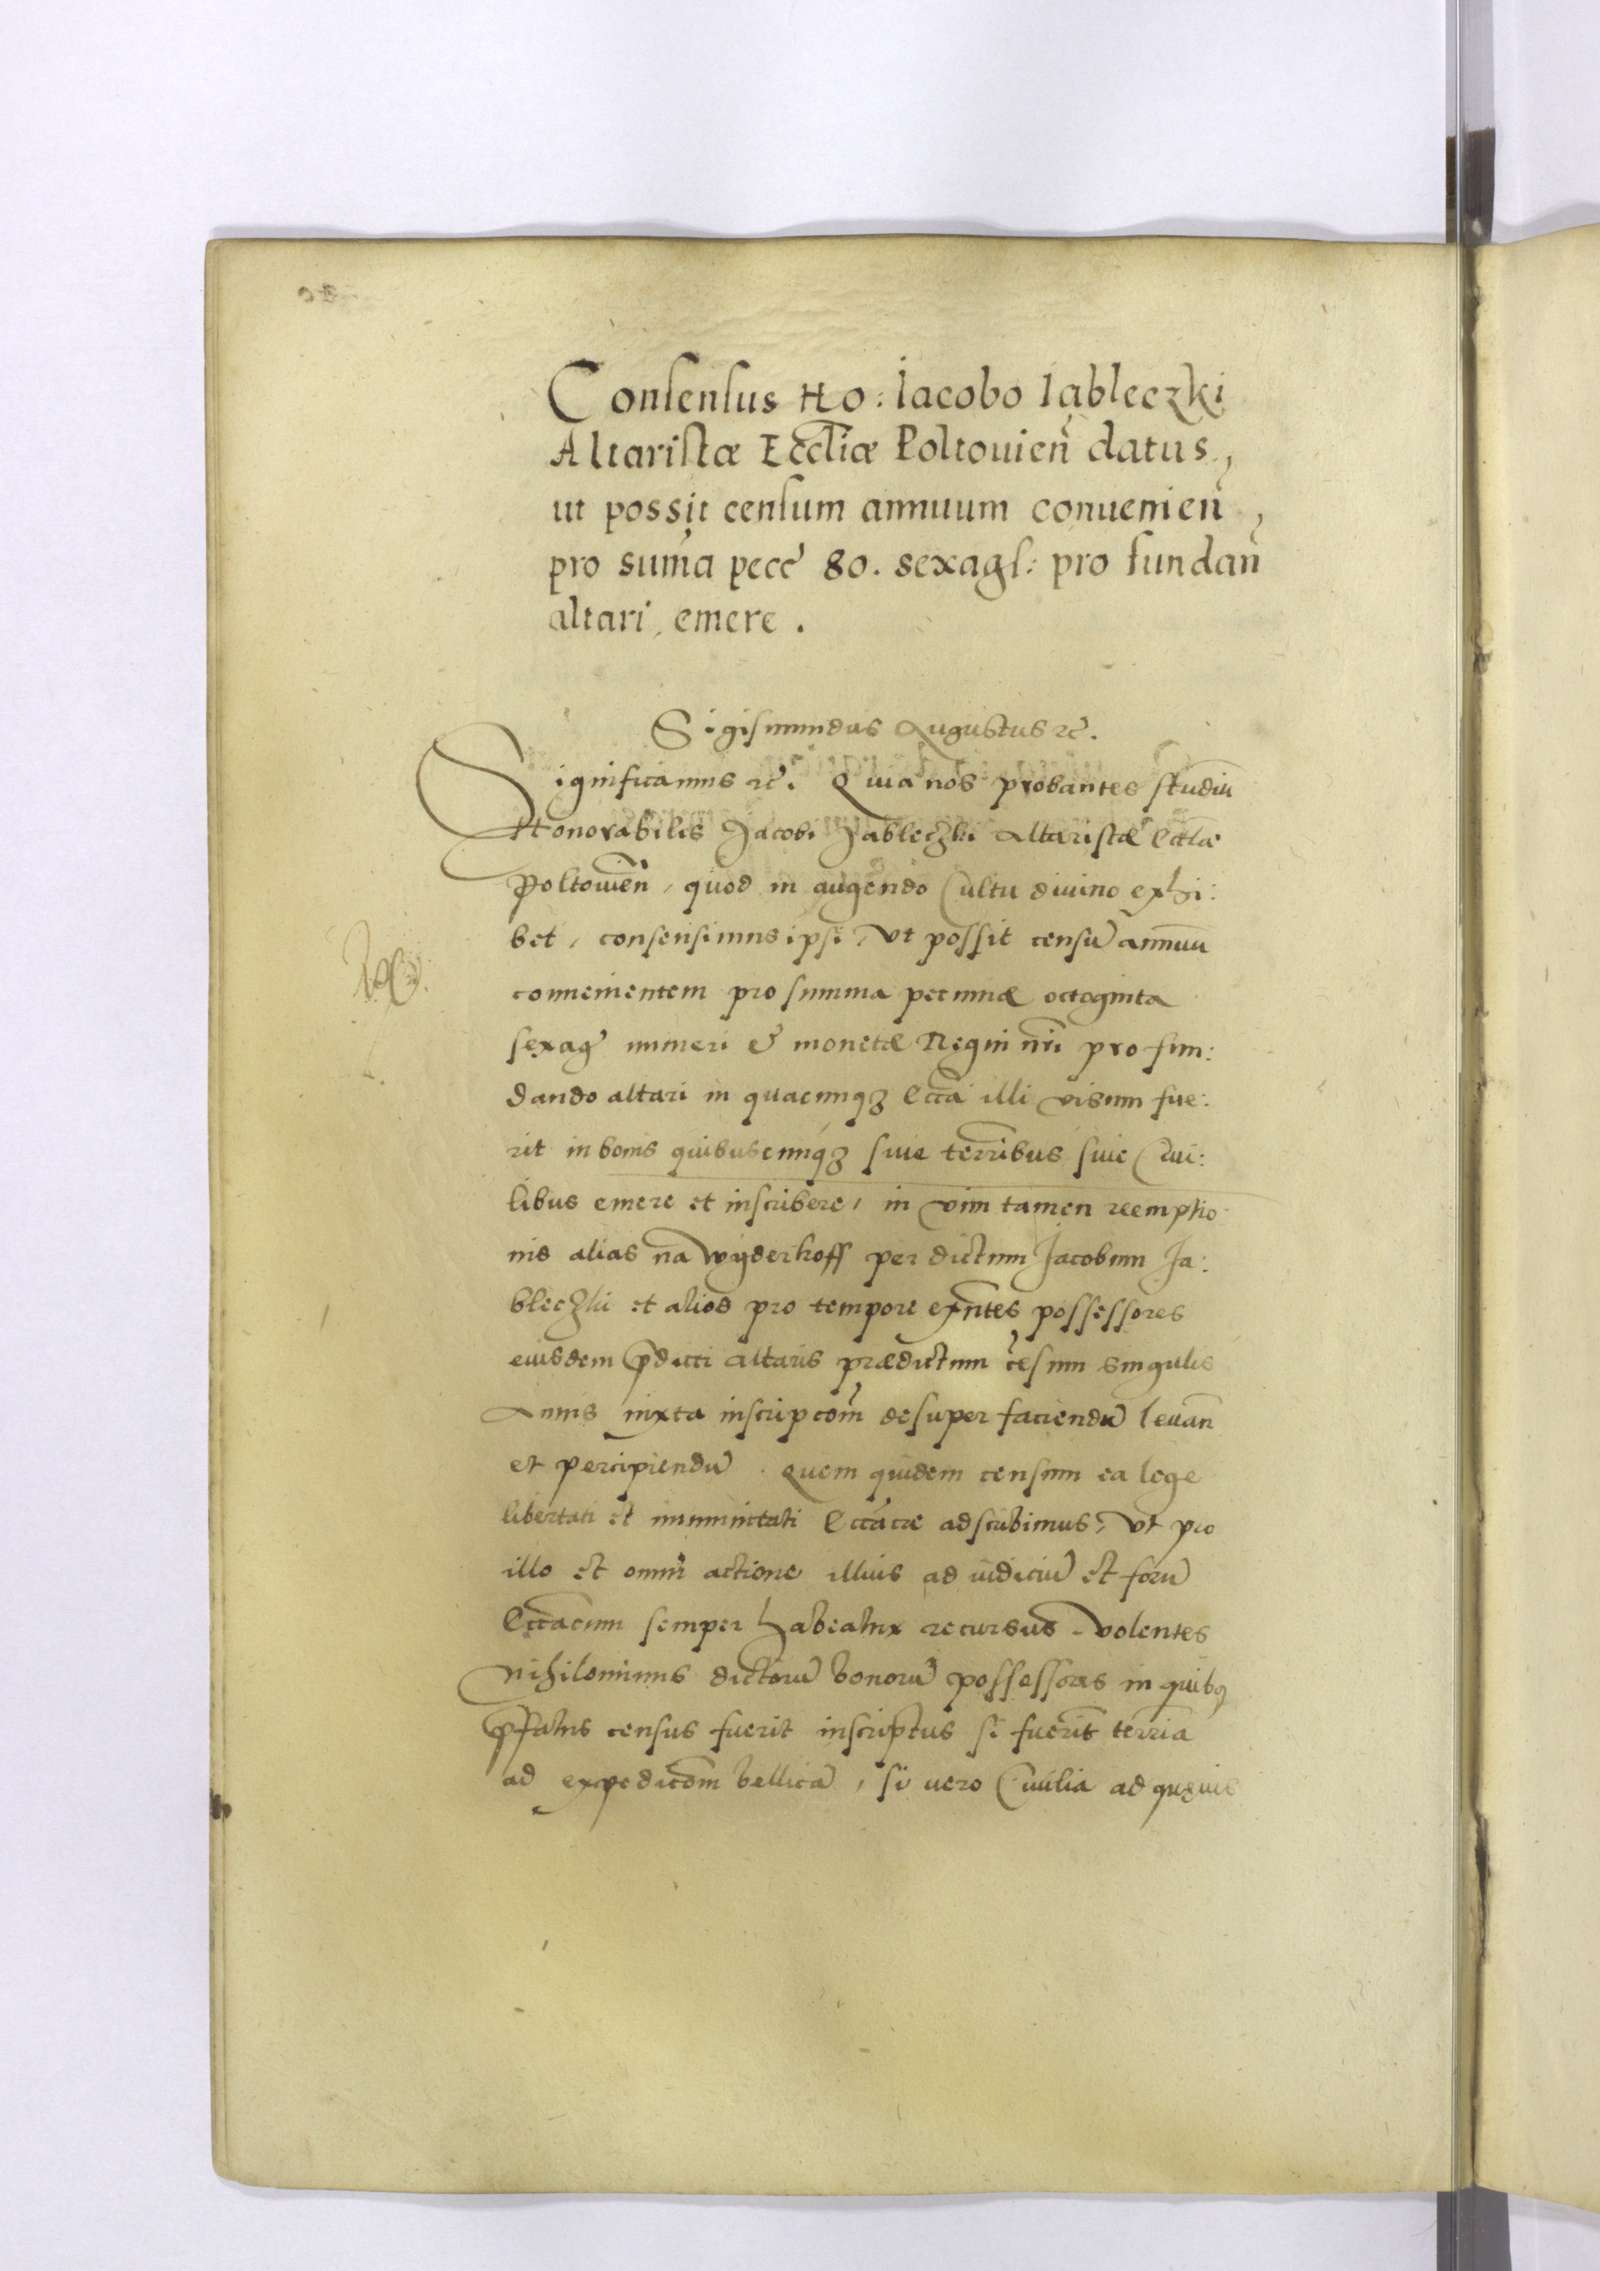 Consensus Ho: Iacobo Iąbleczki
Altaristæ Eccliæ Poltouien̄ datus,
ut possit censum annuum conuenien̄,
pro sum̄a pecc̄ 80. sexags: pro fundan̄
altari, emere.
Sigismundus Augustus etc̄.
Significamus etc̄. Quia nos probantes studiū
Honorabilis Jacobi Jableczki Altaristæ Eccl̄æ
Poltouien̄, quod in augendo Cultu diuino exhi:
bet, consensimus ipsi, vt possit censū annuū
conuenientem pro summa pecuniæ octoginta
sexaḡ numeri & monetæ Regni nr̄i pro fun:
dando altari in quacunqꝫ Eccā illi visum fue:
rit in bonis quibuscunqꝫ siue terr̄ibus siue Ciui:
libus emere et inscribere, in vim tamen reemptio
nis alias na wyderkoff per dictum Jacobum Ja:
bleczki et alios pro tempore exn̄tes possessores
eiusdem p̄dicti altaris prædictum cēsum singulis
Annis iuxta inscripcōm desuper faciendū leuan̄
et percipiendū. Quem quidem censum ea lege
libertati et immunitati Eccāticæ adscribimus, vt pro
illo et omni actione illius ad iudiciū et forū
Eccācum semper habeatur recursus. Volentes
nihilominus dictorū bonorū possessores in quibꝰ
p̄fatus census fuerit inscriptus si fuerīt terr̄ia
ad expedicōm bellicā, si uero Ciuilia ad quæuis